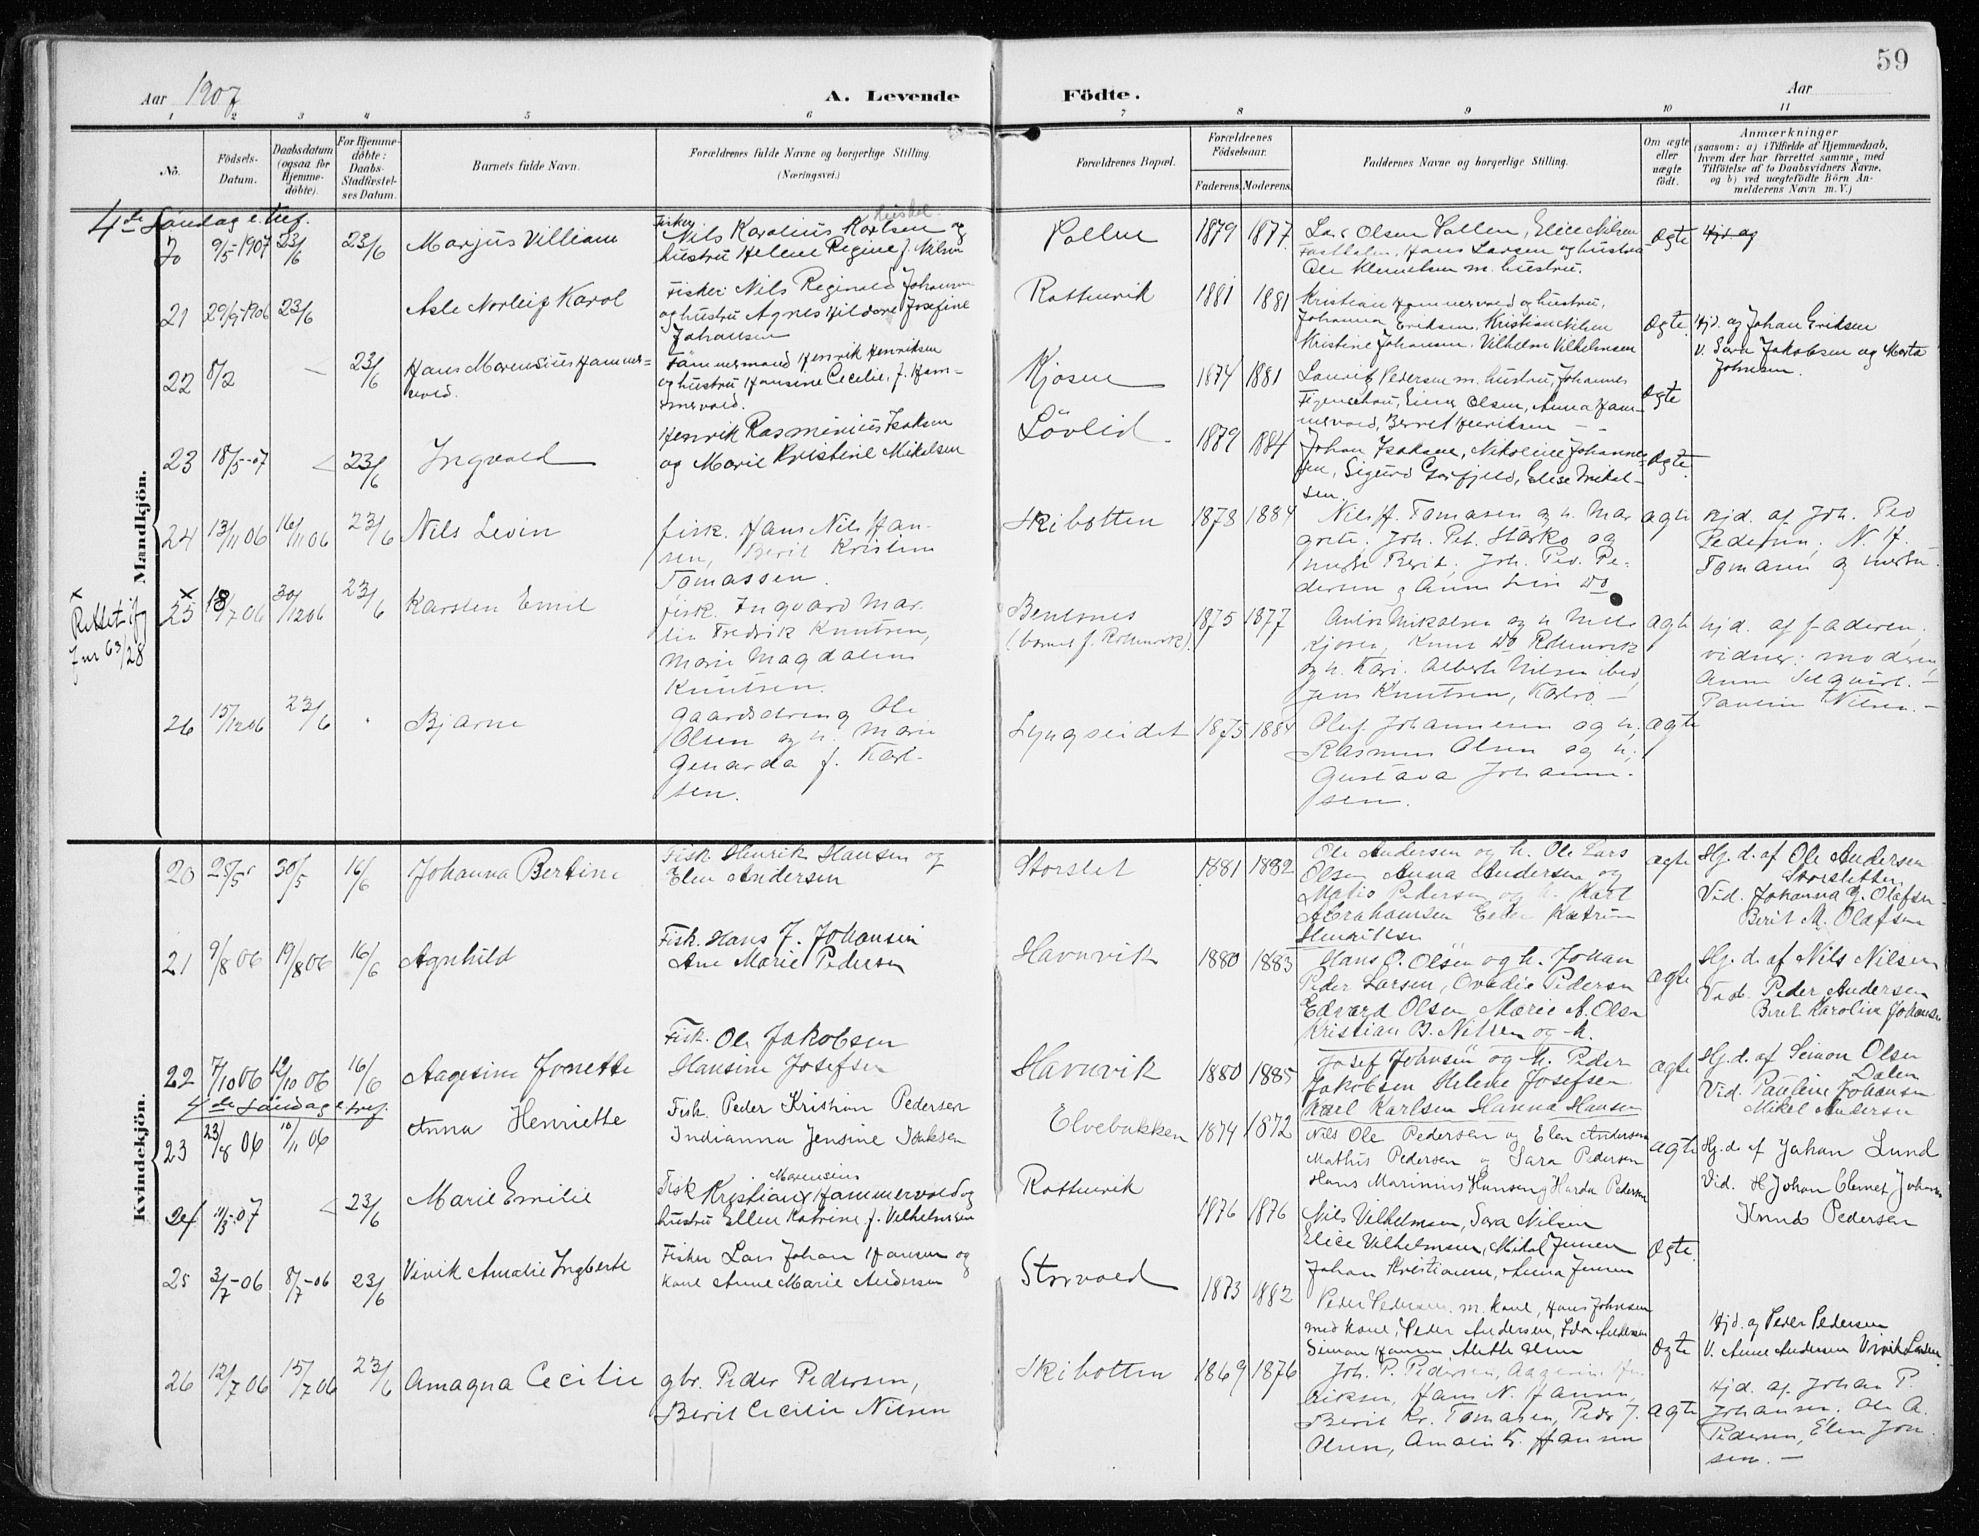 59
Aar 1907
A. Levende Födte.
Aar
1 2 3 4 5 6 7 8 9 10 11
No.
Födsels-Datum.
Daabsdatum (ogsaa for Hjemme-döbte).
For Hjemme-döbte: Daabs-Stadfæstel-ses Datum.
Barnets fulde Navn.
Forældrenes fulde Navne og borgerlige Stilling.
(Næringsvei.)
Forældrenes Bopæl.
Forældrenes Födselsaar.
Faderens. Moderens.
Faddernes Navne og borgerlige Stilling.
Om ægte eller uægte födt.
Anmærkninger
(saasom: a) i Tilfælde af Hjemmedaab,
hvem der har forrettet samme, med
Tilföielse af to Daabsvidners Navne,
og b) ved uægtefödte Börn An-
melderens Navn m. V.)
Mandkjön.
4de Søndag e. tref.
20 9/5-1907 23/6 23/6 Marjus Villiam
Fisker Nils Karolius Karlsen og
hustru Helene Regine f. Nilsen
Pollen 1879 1877
Lars Olsen Pollen, Elice Nilsen
Hans Larsen og hustru
Ole Klemetsen m. hustru.
Ægte Hjd. og
21 29/9-1906 23/6 Asle Norleif Karol
Fisker Nils Reginald Johansen
og hustru Agnes Hildore Josefine
Johansen
Rottenvik 1881 1881
Kristian Hammervold og hustru,
Johanna Eriksen, Kristian Nilsen
Kristine Johansen. Vilhelm Vilhelmsen
Ægte. Hjd. af Johan Eriksen
v. Sara Jakobsen og Marta
Johnsen.
22 8/2 — 23/6 Hans Marensius Hammer-
vold.
Tømmermand Henrik Henriksen
og hustru Hansine Cecilie, f. Ham-
mervold.
Kjosen 1874 1881
Laurits Pedersen m. hustru, Johannes
Einar Olsen, Anna Ham-
mervold, Berret Henriksen
Ægte
23 18/5-07 23/6 Ingvald
Henrik Rasminius Isaksen
og Marie Kristine Mikelsen
Løvlid 1879 1884
Johan Isaksen, Nikoline Johanne-
sen, Sigurd Gorfjeld, Elise Mikal-
sen.
Ægte.
24 13/11 06 16/11 06 23/6 Nils Levin
fisk. Hans Nils Han-
sen, Berit Kristine
Tomassen.
Skibotten 1878 1884
Nils H. Tomasen og h. Mar
grete. Joh. Pet. Starko og
hustr Berit, Joh. Ped. Pe-
dersen, Anne Do
ægte Hjd. af Joh. Ped
Pedersen, N. H.
Tomasen og hustru.
x
Rettet ifg
Jnr 63/28
25 18/7 06 30/12 06 23/6 Karsten Emil
fisk. Ingvard Mar-
lin Fredrik Knutsen,
Marie Magdalene
Knutsen.
Bentsnes 1875 1877
(barnet f. Rottenvik)
Mikalsen og h.
Kjosen, Knut Do Rottenvik
og h. Kari. Albert Nilsen
Jens Knutsen, Karlsø —
ægte hjd. af faderen,
vidner: moderen,
Anne
Pauline Nilsen. —
26 15/12 06 23/6 Bjarne
Gaardsdreng Ole
Olsen og h. Marie
Genarda f. Karl-
sen.
Lyngseidet 1875 1884
Oluf Johannesen og h,
Rasmus Olsen og h,
Gustava Johann-
sen.
ægte
Kvindekjön.
20 25/5 30/5 16/6 Johanna Bertine
Fisk. Henrik Hansen og
Elen Andersen
Storslet 1881 1882
Ole Andersen og h. Ole Lars
Olsen Anna Andersen og
Matis Pedersen og h. Karl
Abrahamsen Elen Katrine
Henriksen
ægte Hj. d. af Ole Andersen
Storsletten
Vid. Johanna G. Olafsen
Berit M. Olafsen
21 9/8 06 19/8 06 16/6 Agnhild
Fisk. Hans J. Johansen
Ane Marie Pedersen
Havnvik 1880 1883
Hans O. Olsen og h. Johan
Peder Larsen, Ovedie Pedersen
Edvard Olsen Marie A. Olsen
Kristian B. Nilsen og h.
ægte Hj. d. af Nils Nilsen
Vid. Peder Andersen
Beret Karoline Johansen
22 7/10 06 12/10 06 16/6 Aagesine Jonette
Fisk. Ole Jakobsen
Hansine Josefsen
Havnvik 1880 1885
Josef Johnsen og h. Peder
Jakobsen Helene Josefsen
Karl Karlsen Hanna Hansen
ægte Hj. d. af Simon Olsen
Dalen
Vid. Pauline Johansen
Mikel Andersen
4de Søndag e. tref.
23 23/8 06 10/11 06 Anna Henriette
Fisk. Peder Kristian Pedersen
Indianna Jensine Isaksen
Elvebakken 1874 1872
Nils Ole Pedersen og Elen Andersen
Mathis Pedersen og Sara Pedersen
Hans Marinius Hansen, Harda Pedersen
ægte Hj. d. af Johan Lund
Vid. H Johan Clemet Johans
Knud Pedersen
24 11/3-07 23/6 Marie Emilie
Fisk Kristian Marensius Hammervold og
hustru Ellen Katrine f. Vilhelmsen
Rottenvik 1876 1876
Nils Vilhelmsen, Sara Nilsen
Elice Vilhelmsen, Mikal Jensen
Johan Kristiansen, Anna Jensen
Ægte.
25 3/7-06 8/7-06 23/6 Vivik Amalie Ingberte
Fisker Lars Johan Hansen og
kone Anne Marie Andersen
Storvold 1873 1882
Peder Pedersen m. kone, Hans Johnsen
med kone, Peder Andersen, Ida Andersen
Simon Hansen Alette Olsen
Ægte Hjd. af Peder Pedersen
V. Anne Andersen Vivik Larsen
26 12/7 06 15/7 06 23/6 Amagna Cecilie
gbr. Peder Pedersen,
Berit Cecilie Nilsen
Skibotten 1869 1876
Joh. P. Pedersen, Aagenine
Hans N. Hansen,
Berit Kr. Tomasen, Peder J.
Olsen, Hansen
ægte Hjd. af Johan P.
Johansen. Ole A.
Pedersen, Elen Jon-
sen. —